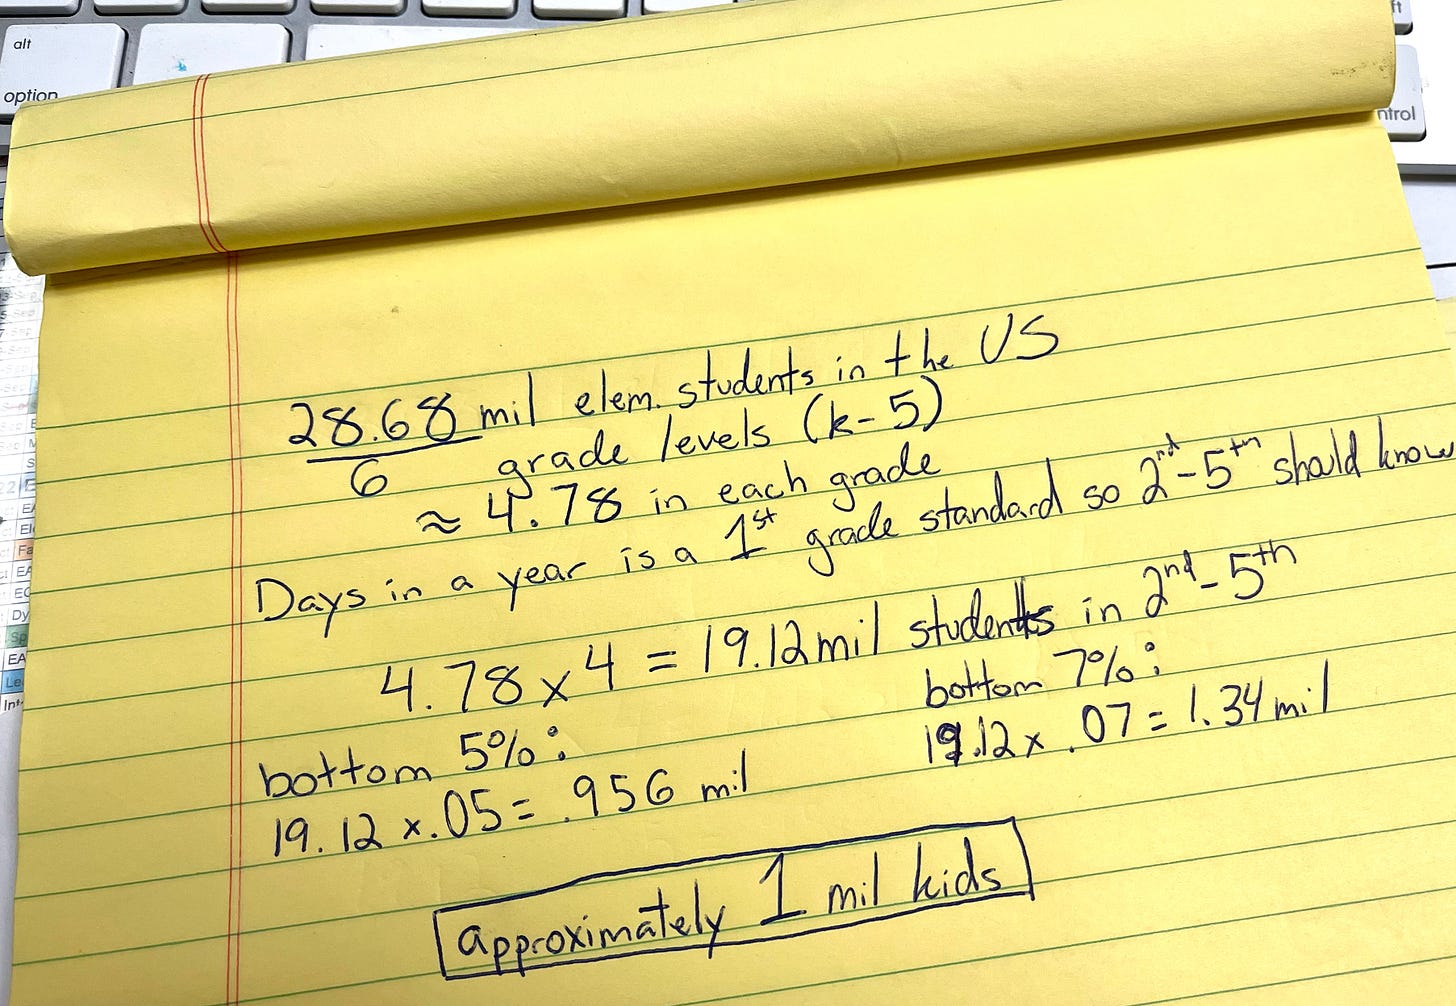 alt
option
ft
ntrol
28.68 mil elem. students in the US
6 grade levels (k-5)
≈ 4.78 in each grade
Days in a year is a 1st grade standard so 2nd-5th should know
4.78 x 4 = 19.12 mil students in 2nd-5th
bottom 5%:
19.12 x .05 = .956 mil
bottom 7%:
19.12 x .07 = 1.34 mil
approximately 1 mil kids
EA
Dy
Sp
EA
Le